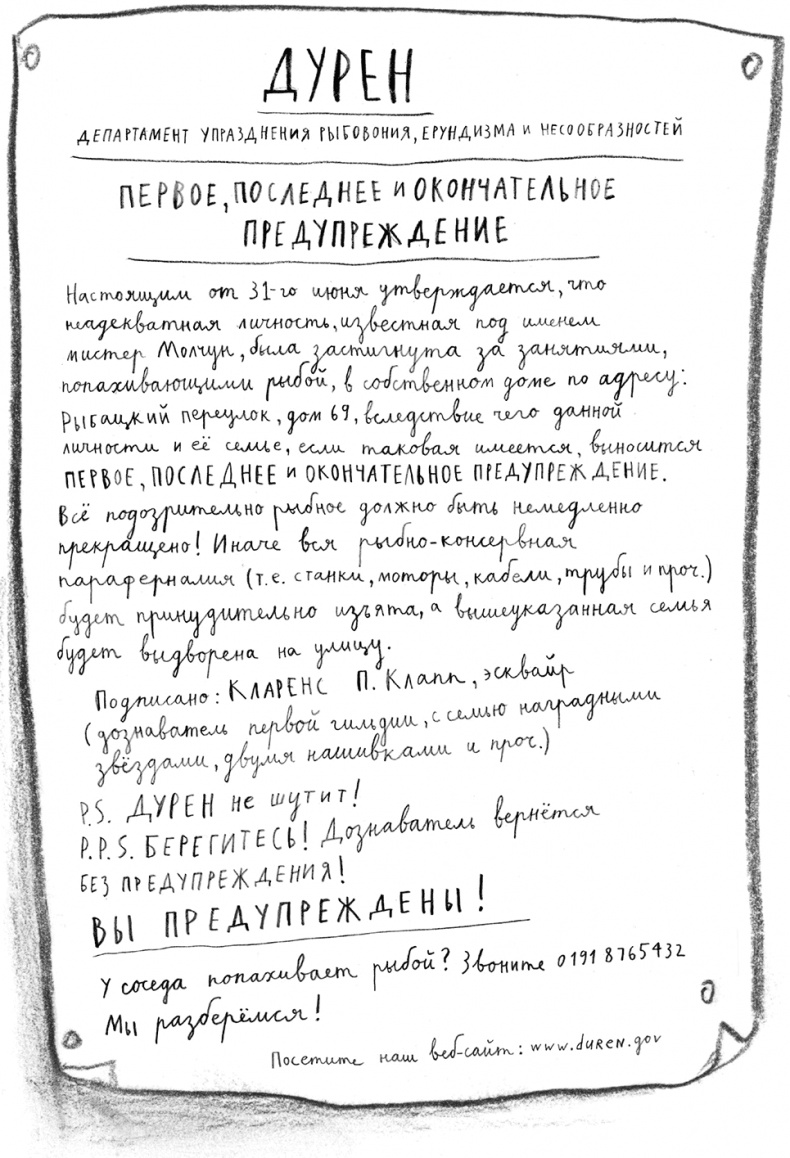 ДУРЕН
ДЕПАРТАМЕНТ УПРАЗДНЕНИЯ РЫБОВОНИЯ, ЕРУНДИЗМА И НЕСООБРАЗНОСТЕЙ
ПЕРВОЕ, ПОСЛЕДНЕЕ И ОКОНЧАТЕЛЬНОЕ
ПРЕДУПРЕЖДЕНИЕ
Настоящим от 31-го июня утверждается, что
неадекватная личность, известная под именем
мистер Молчун, была застигнута за занятиями,
попахивающими рыбой, в собственном доме по адресу:
Рыбацкий переулок, дом 69, вследствие чего данной
личности и её семье, если таковая имеется, выносится
ПЕРВОЕ, ПОСЛЕДНЕЕ И ОКОНЧАТЕЛЬНОЕ ПРЕДУПРЕЖДЕНИЕ.
Всё подозрительно рыбное должно быть немедленно
прекращено! Иначе вся рыбно-консервная
параферналия (т.е. станки, моторы, кабели, трубы и проч.)
будет принудительно изъята, а вышеуказанная семья
будет выдворена на улицу.
Подписано: КЛАРЕНС П. Клапп, эсквайр
(дознаватель первой гильдии, с семью наградными
звёздами, двумя нашивками и проч.)
P.S. ДУРЕН не шутит!
P.P.S. БЕРЕГИТЕСЬ! Дознаватель вернётся
БЕЗ ПРЕДУПРЕЖДЕНИЯ!
ВЫ ПРЕДУПРЕЖДЕНЫ!
У соседа попахивает рыбой? Звоните 0191 8765432
Мы разберёмся!
Посетите наш веб-сайт: www.duren.gov